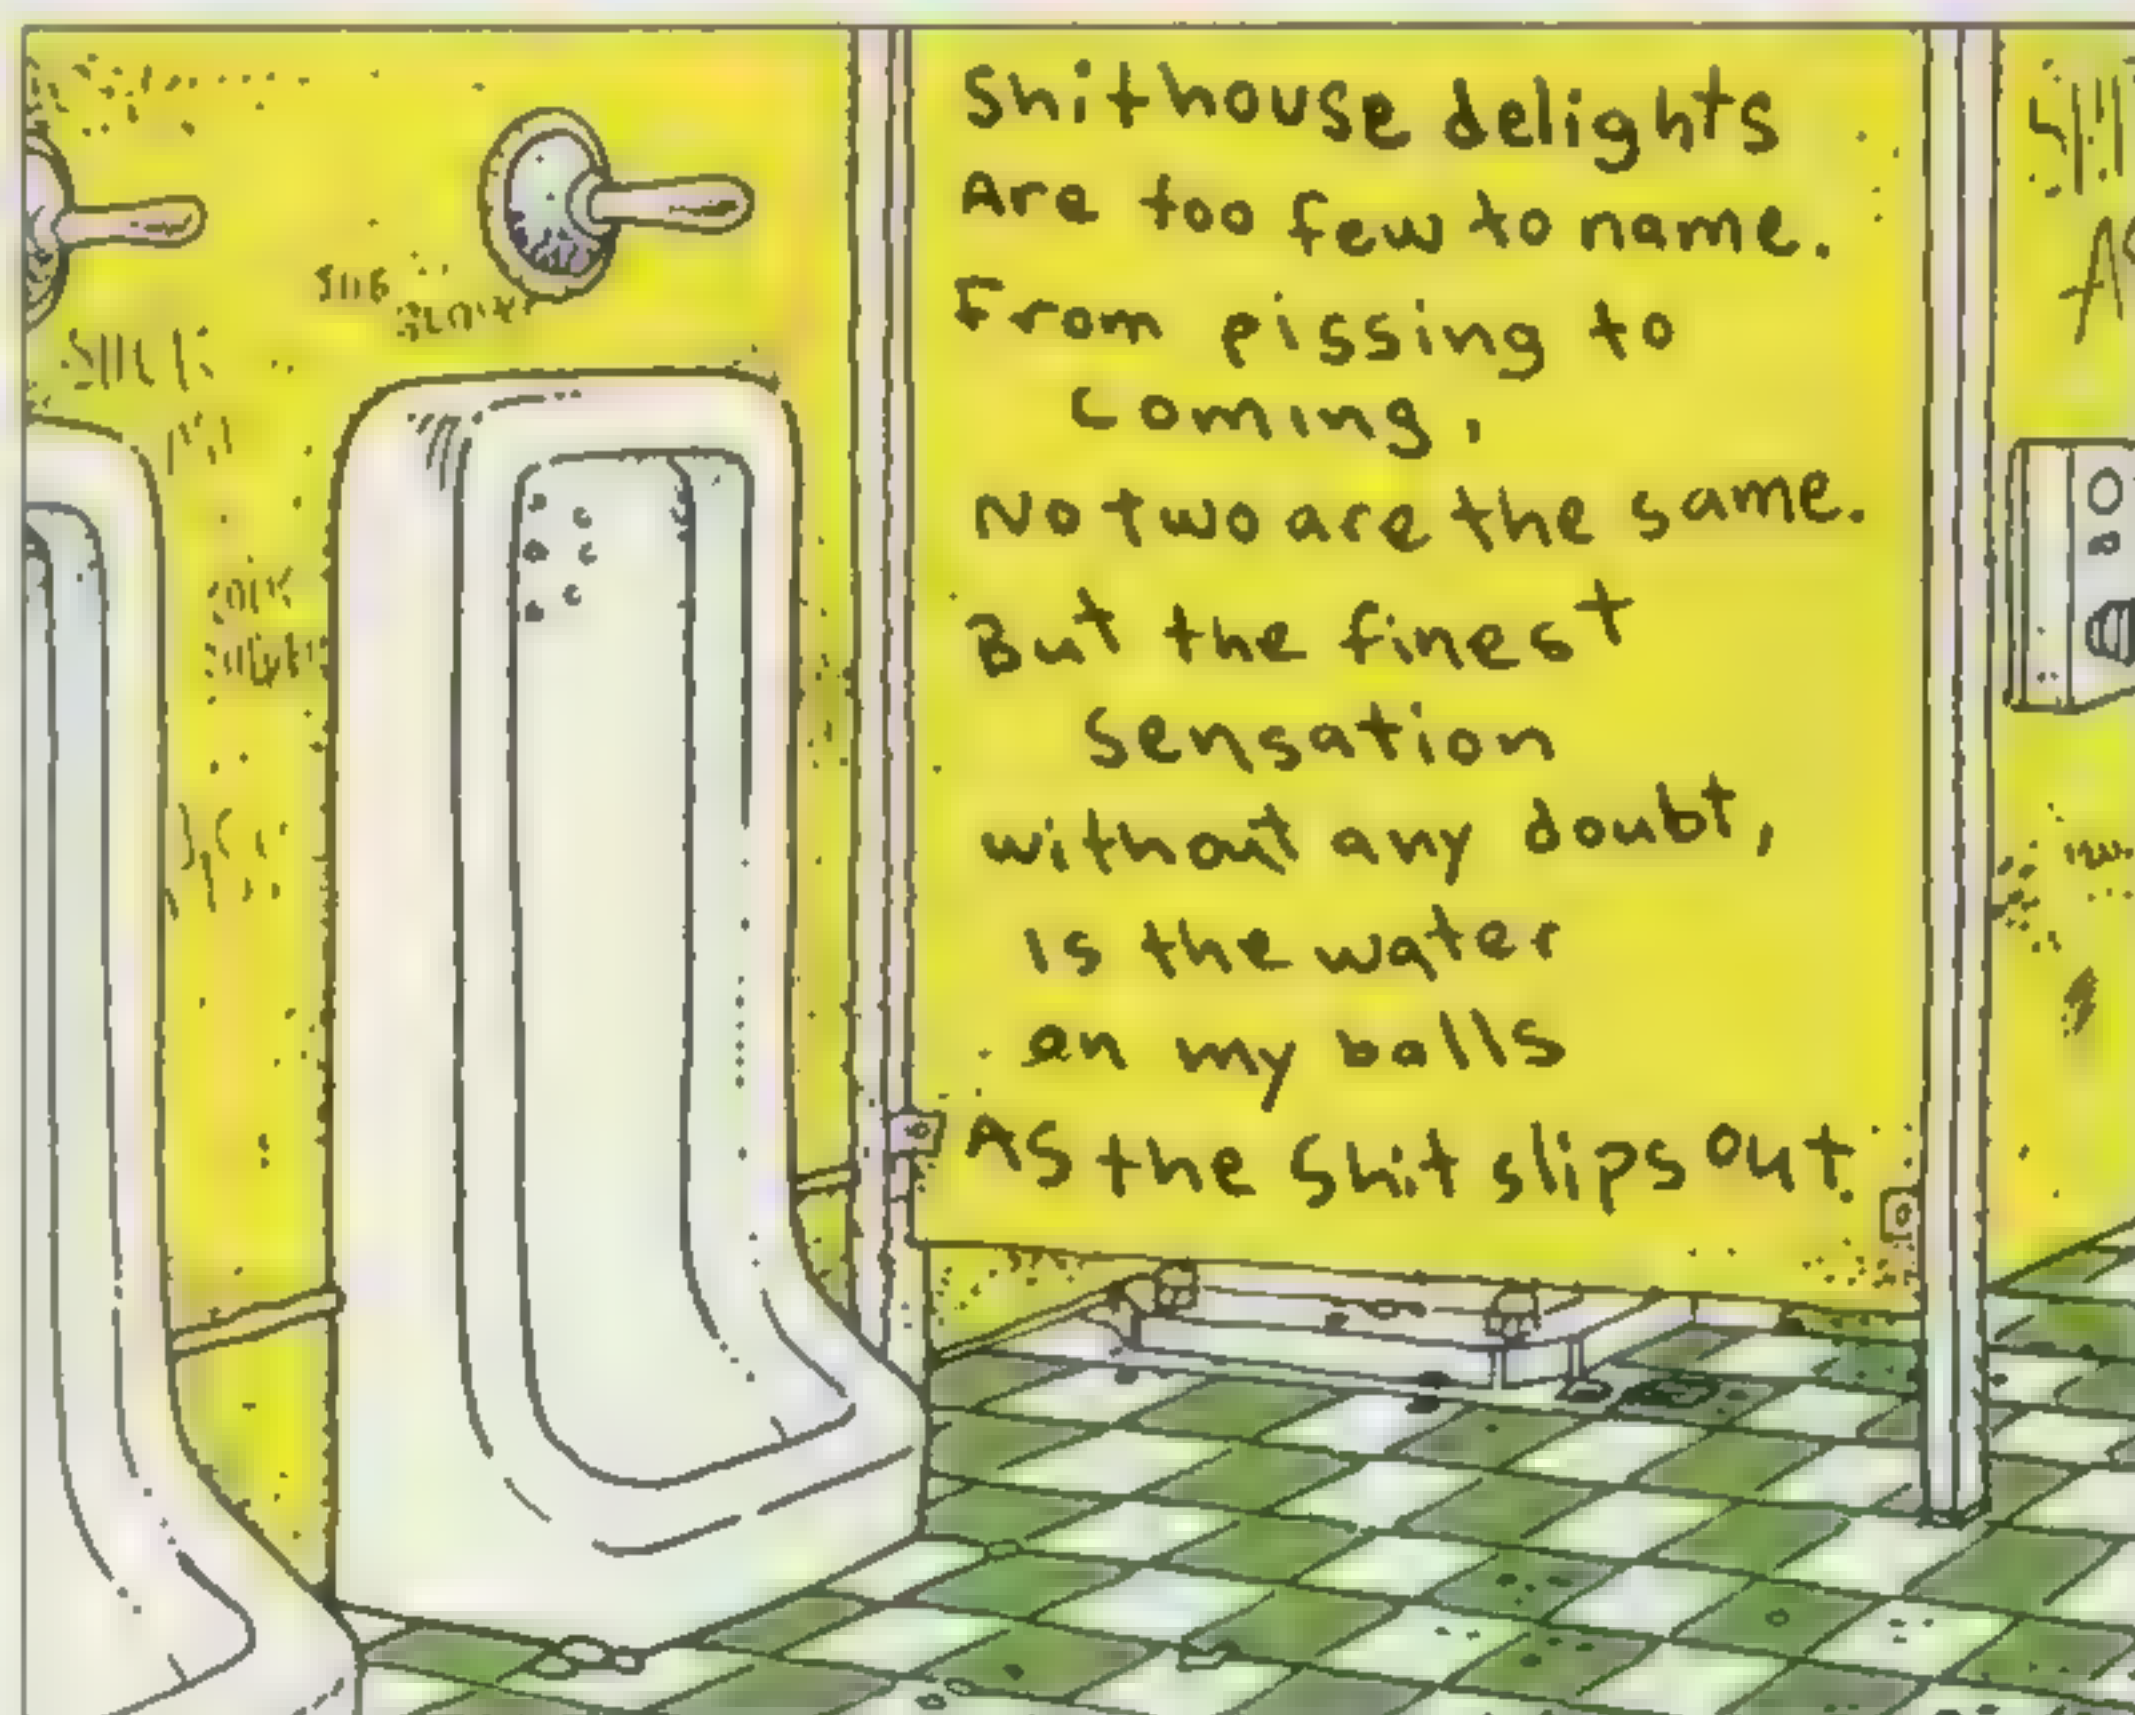 Shithouse delights
Are too few to name.
From pissing to
coming,
No two are the same.
But the finest
sensation
without any doubt,
Is the water
on my balls
As the Shit slips out.
SUCK